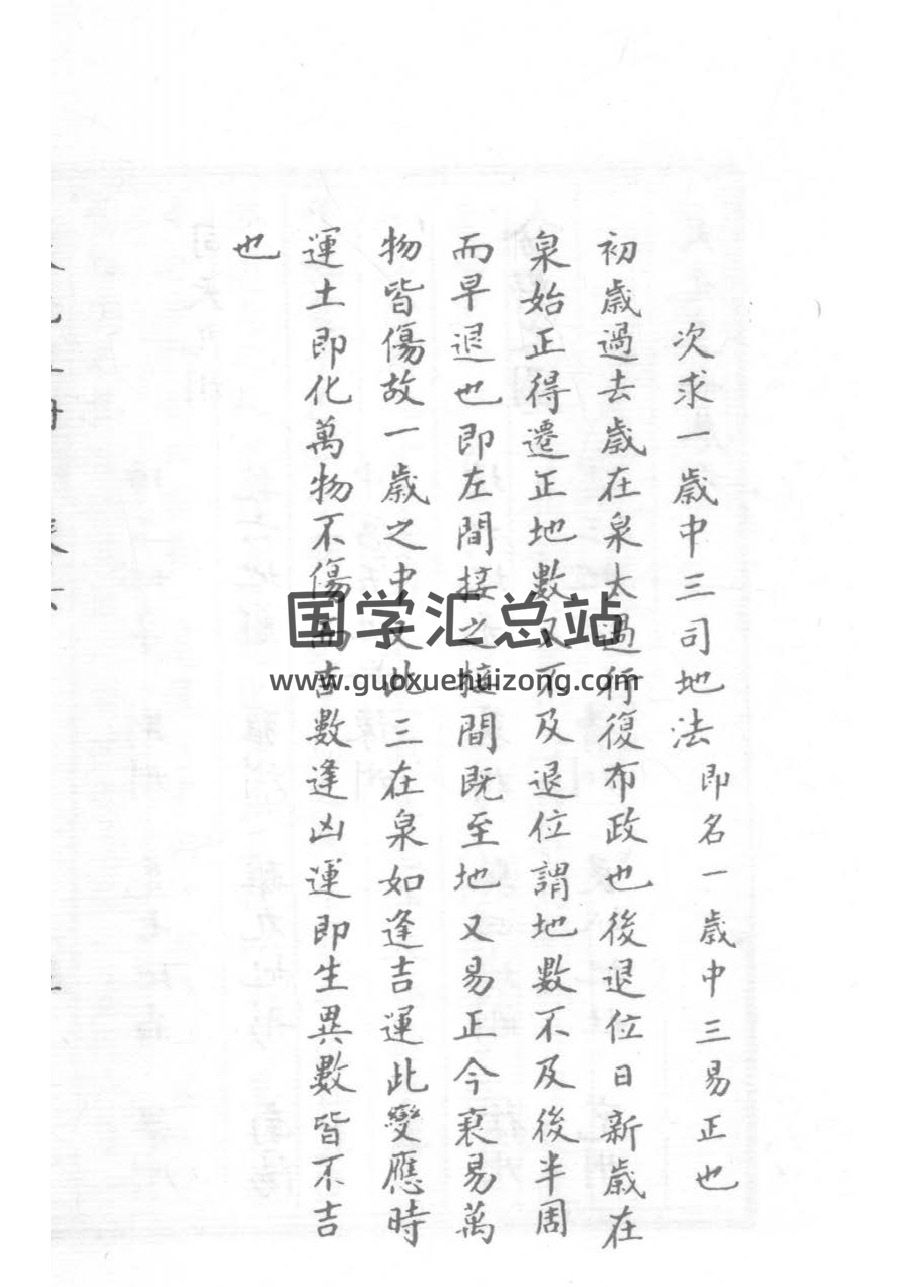 次求一歲中三司地法 即名一歲中三易正也
初歲過去歲在泉太過行復布政也後退位日新歲在
泉始正得遷正地數又不及退位謂地數不及後半周
而早退也即左間接之 間既至地又易正令 易萬
物皆傷故一歲之中 此三在泉如逢吉運此變應時
運土即化萬物不傷 吉數逢凶運即生異數皆不吉
也
国学汇总站
www.guoxuehuizong.com